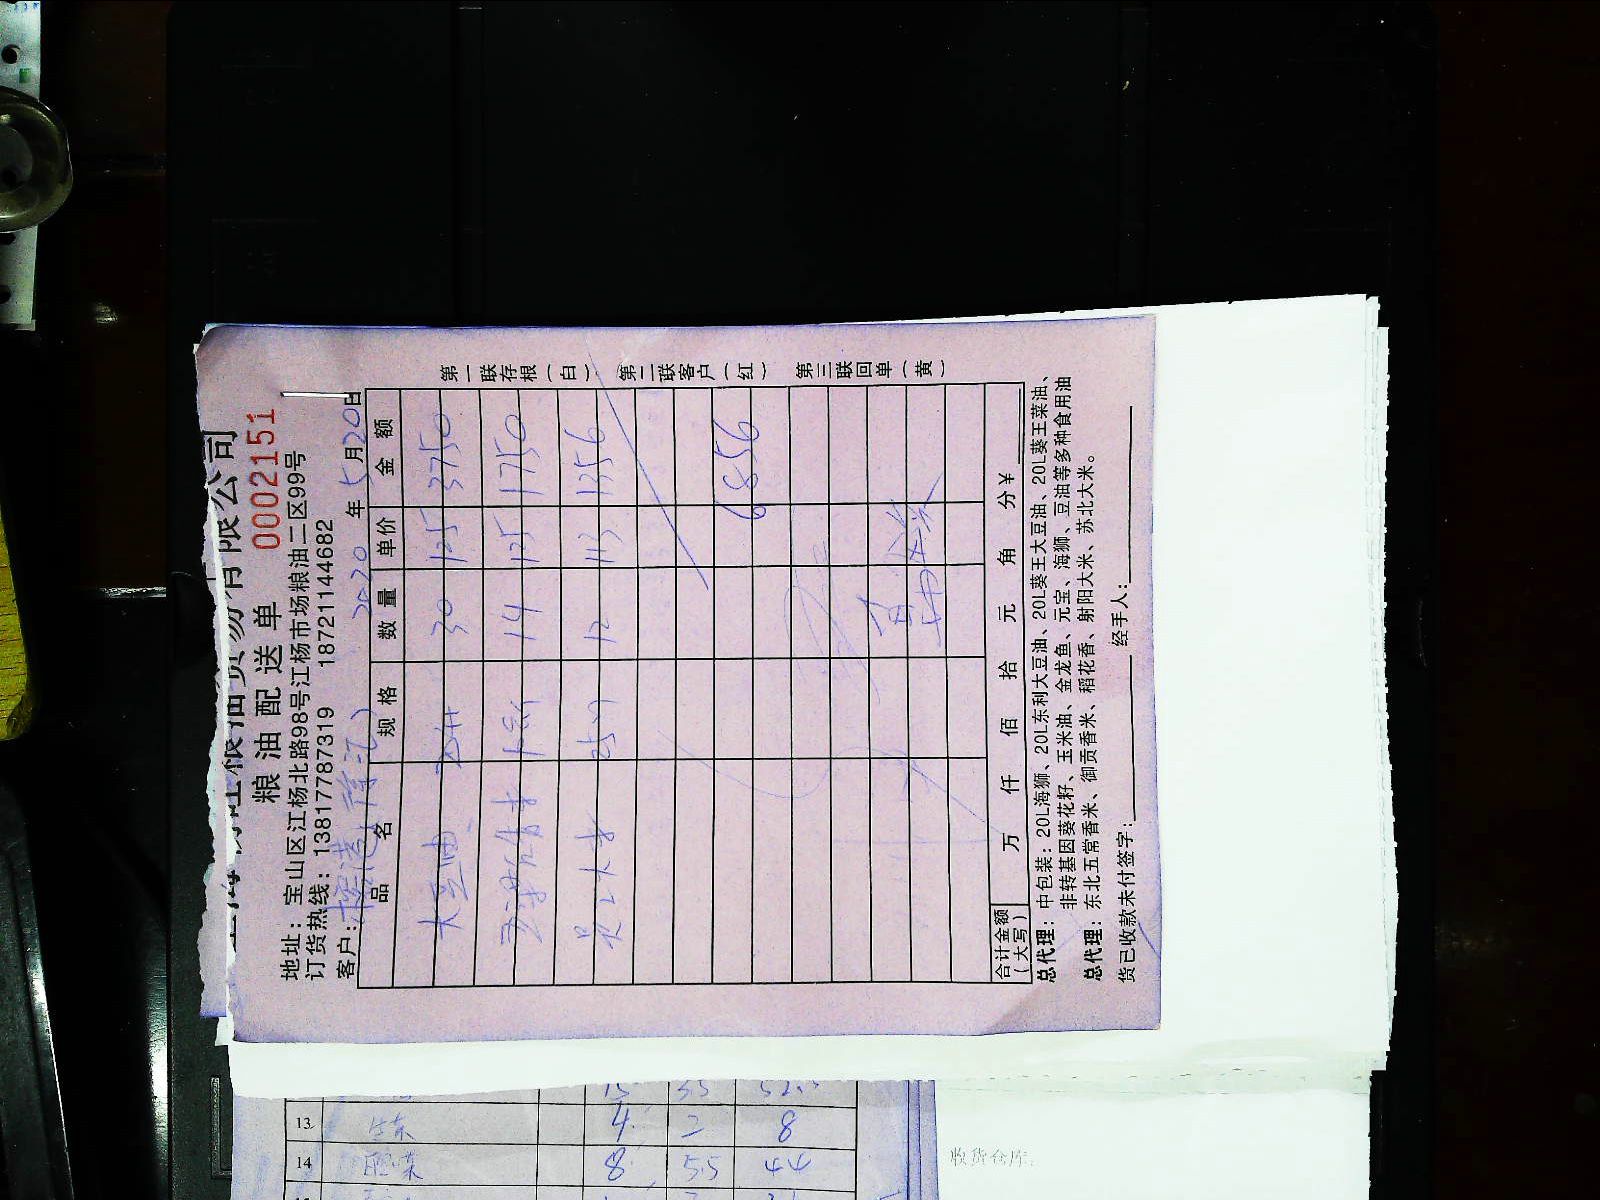 粮油贸易有限公司
粮油配送单 0002151
地址：宝山区江杨北路98号江杨市场粮油二区99号
订货热线：13817787319 18721144682
客户： 2020 年 5 月 20 日
品名 规格 数量 单价 金额
大豆油 30 125 3750
14 125 1750
大米 12 113 1356
6856
合计金额（大写） 万 仟 佰 拾 元 角 分 ¥
总代理：中包装：20L海狮、20L东利大豆油、20L葵王大豆油、20L葵王菜油、
非转基因葵花籽、玉米油、金龙鱼、元宝、海狮、豆油等多种食用油
总代理：东北五常香米、御贡香米、稻花香、射阳大米、苏北大米。
货已收款未付签字： 经手人：
第一联存根（白） 第二联客户（红） 第三联回单（黄）
15 3.5 52.5
13 4 2 8
14 8 5.5 44
收货仓库: